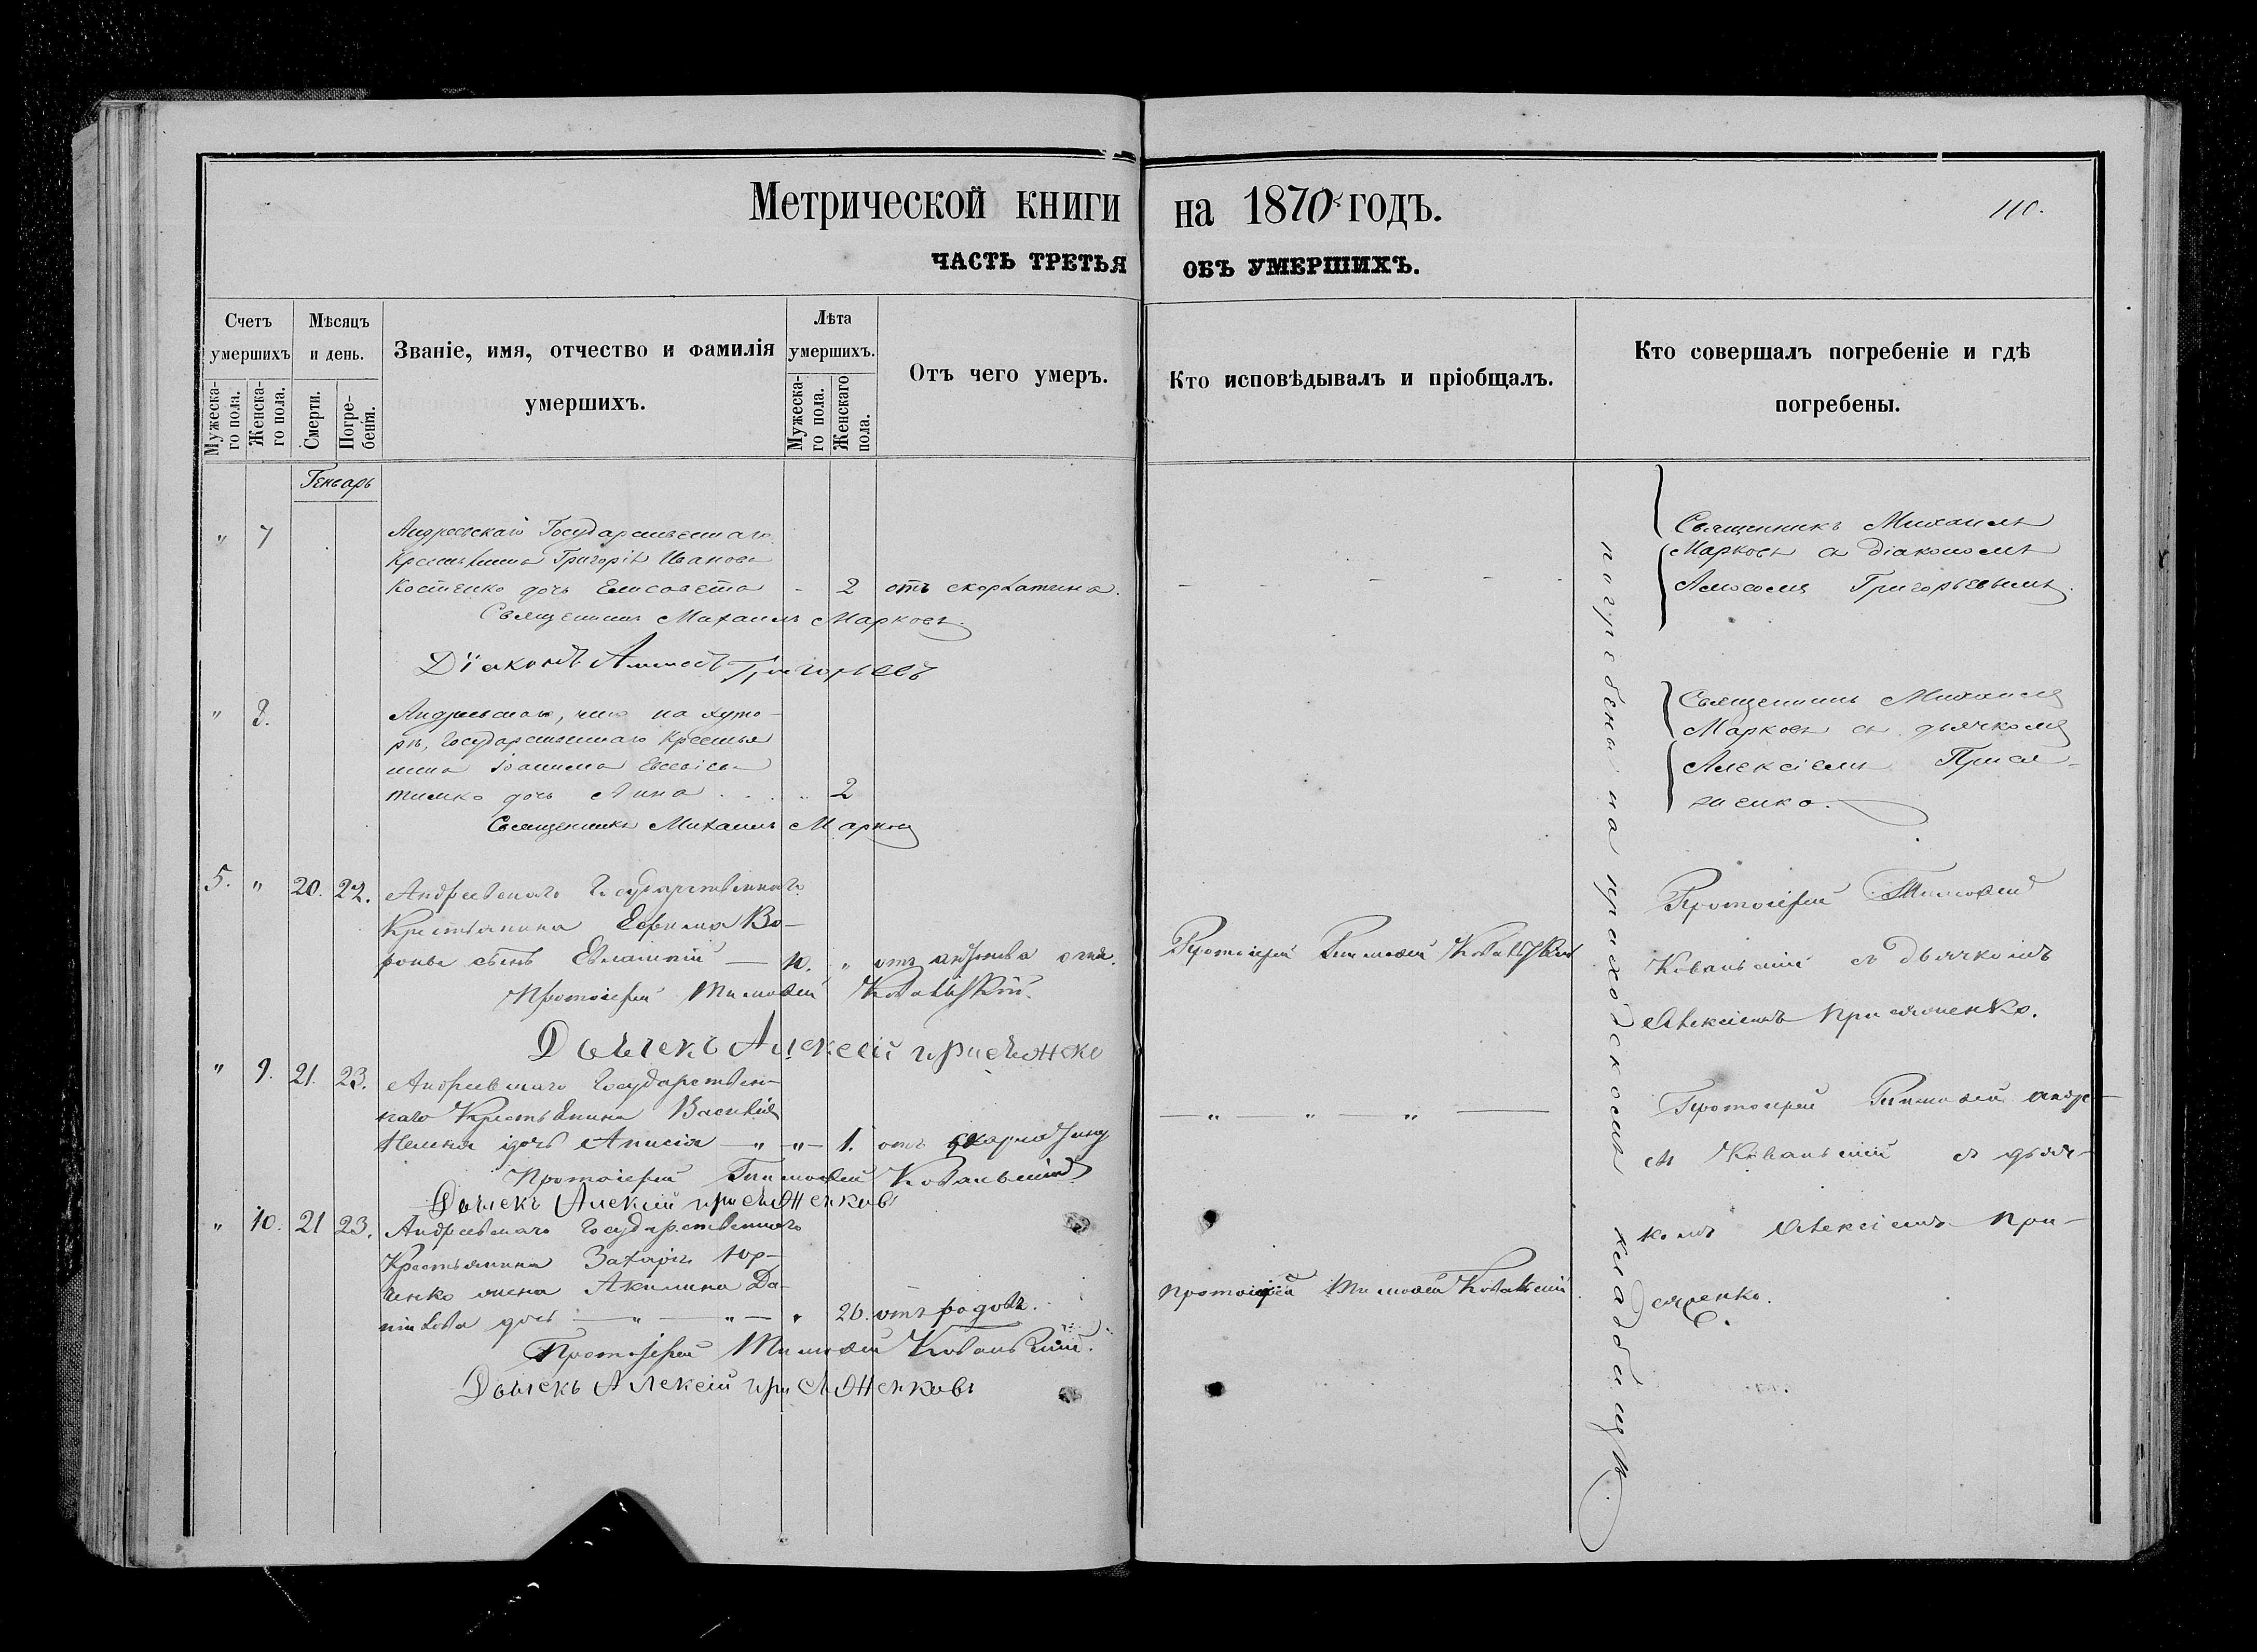 Метрической книги на 1870 годъ.
110.
ЧАСТЬ ТРЕТЬЯ ОБЪ УМЕРШИХЪ.
Счетъ умершихъ
Мужеска-го пола.
Женска-го пола.
Мѣсяцъ и день.
Смерти.
Погре-бенія.
Званіе, имя, отчество и фамилія
умершихъ.
Лѣта умершихъ.
Мужеска-го пола.
Женскаго пола.
Отъ чего умеръ.
Кто исповѣдывалъ и пріобщалъ.
Кто совершалъ погребеніе и гдѣ
погребены.
Генварь
" 7 Андреевскаго Государственнаго
Крестьянина Григорія Иванова
Костенко дочь Елисавета - 2 отъ скорлатина.
Священникъ Михаилъ Марковъ
Діаконъ Амосъ Григорьевъ
Священникъ Михаилъ
Марковъ с діакономъ
Амосомъ Григорьевымъ.
" 8. Андреевскаго, что на хуто-
рѣ, Государственнаго Крестья
нина Іоанима
дочь Анна 2
Священникъ Михаилъ Марковъ
Священникъ Михаилъ
Марковъ съ дьячкомъ
Алексіемъ Прися-
женко.
5. " 20. 22. Андреевскаго Государственнаго
Крестьянина Ефима Во-
ронье сынъ Евлампій — 10. " отъ антонова огня.
Протоіерей Тимофей Ковалевскій.
Дьячекъ Алексей присяженко
Протоіерей Тимофей Ковалевскій
Протоіерей Тимофей
Ковалевскій съ дьячкомъ
Алексіемъ Присяженко.
" 9. 21. 23. Андреевскаго Государствен-
наго Крестьянина Василія
дочь Анисія — " — " — 1. отъ скарлатину
Протоіерей Тимофей Ковалевскій
Дьячекъ Алексій присяженковъ
— " — " " —
Протоіерей Тимофей
Ковалевскій съ дьяч-
комъ Алексіемъ При-
сяженко.
" 10. 21 23. Андреевскаго Государственнаго
Крестьянина Захарія Юр-
ченко жена Акилина Да-
нилова дочь — " — " — " 26. отъ родовъ.
Протоіерей Тимофей Ковалевскій.
Дьячекъ Алексій присяженковъ
Протоіерей Тимофей Ковалевскій
погребены на приходскомъ кладбищѣ.